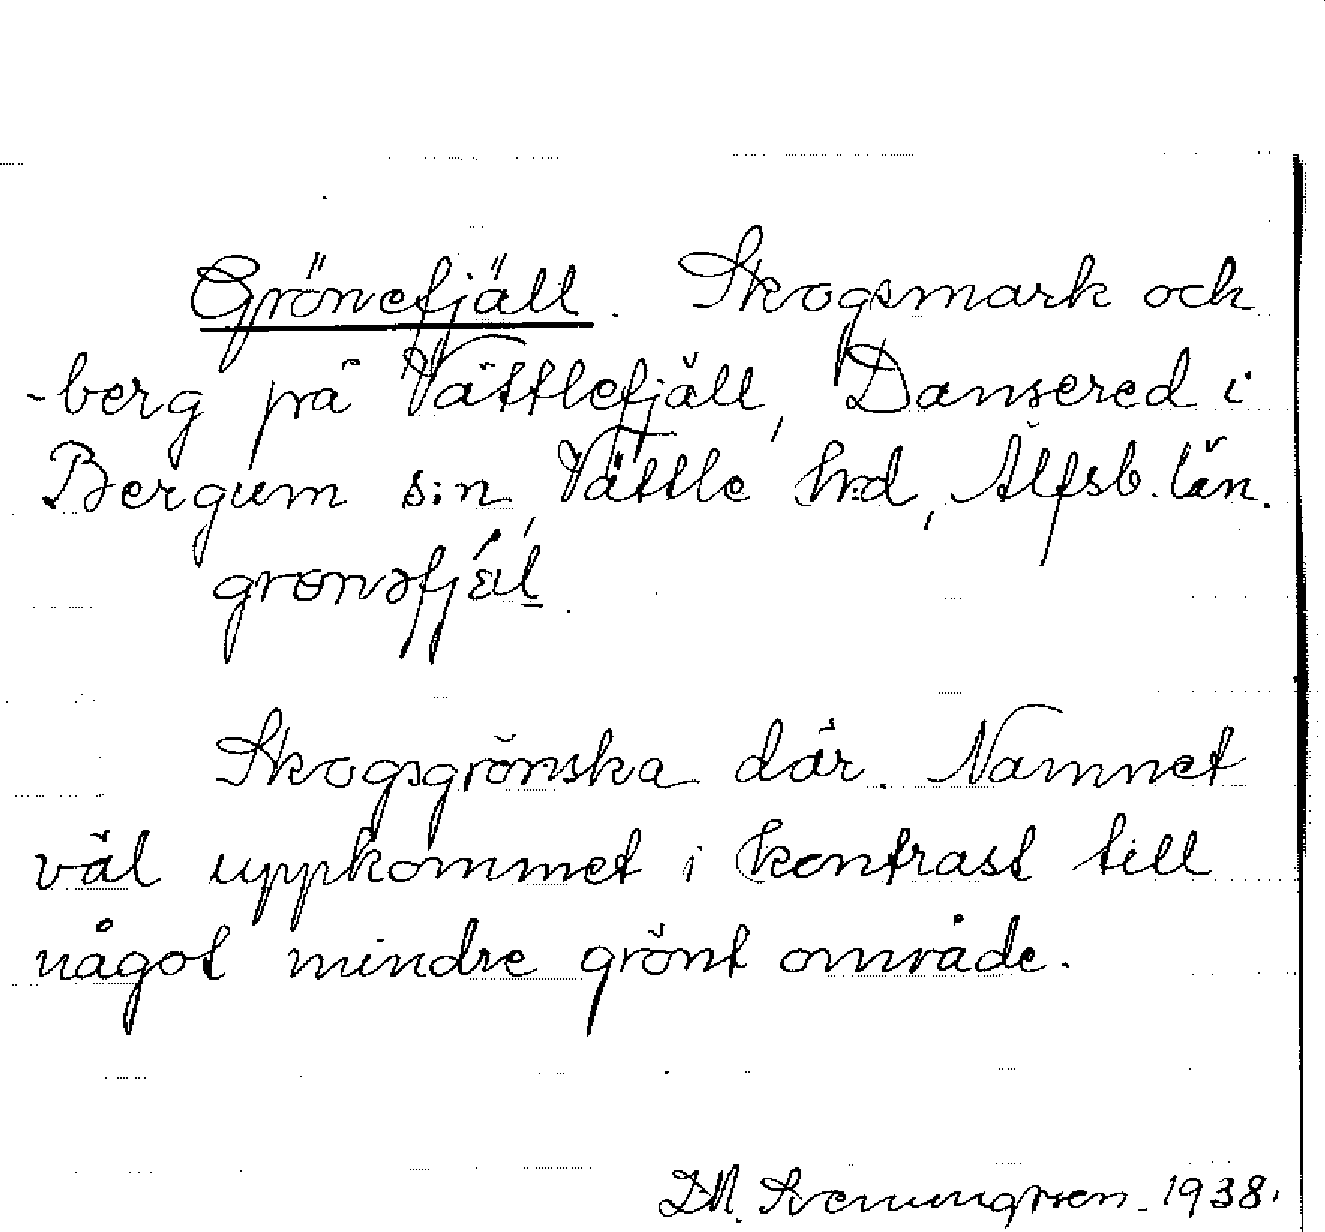 Grönefjäll. Skogsmark och
-berg på Vättlefjäll, Dansered i
Bergum s:n, Vättle h:d, Älfsb. län.
Skogsgrönska där. Namnet
väl uppkommet i kontrast till
något mindre grönt område.
D.M. Svenungsson. 1938.